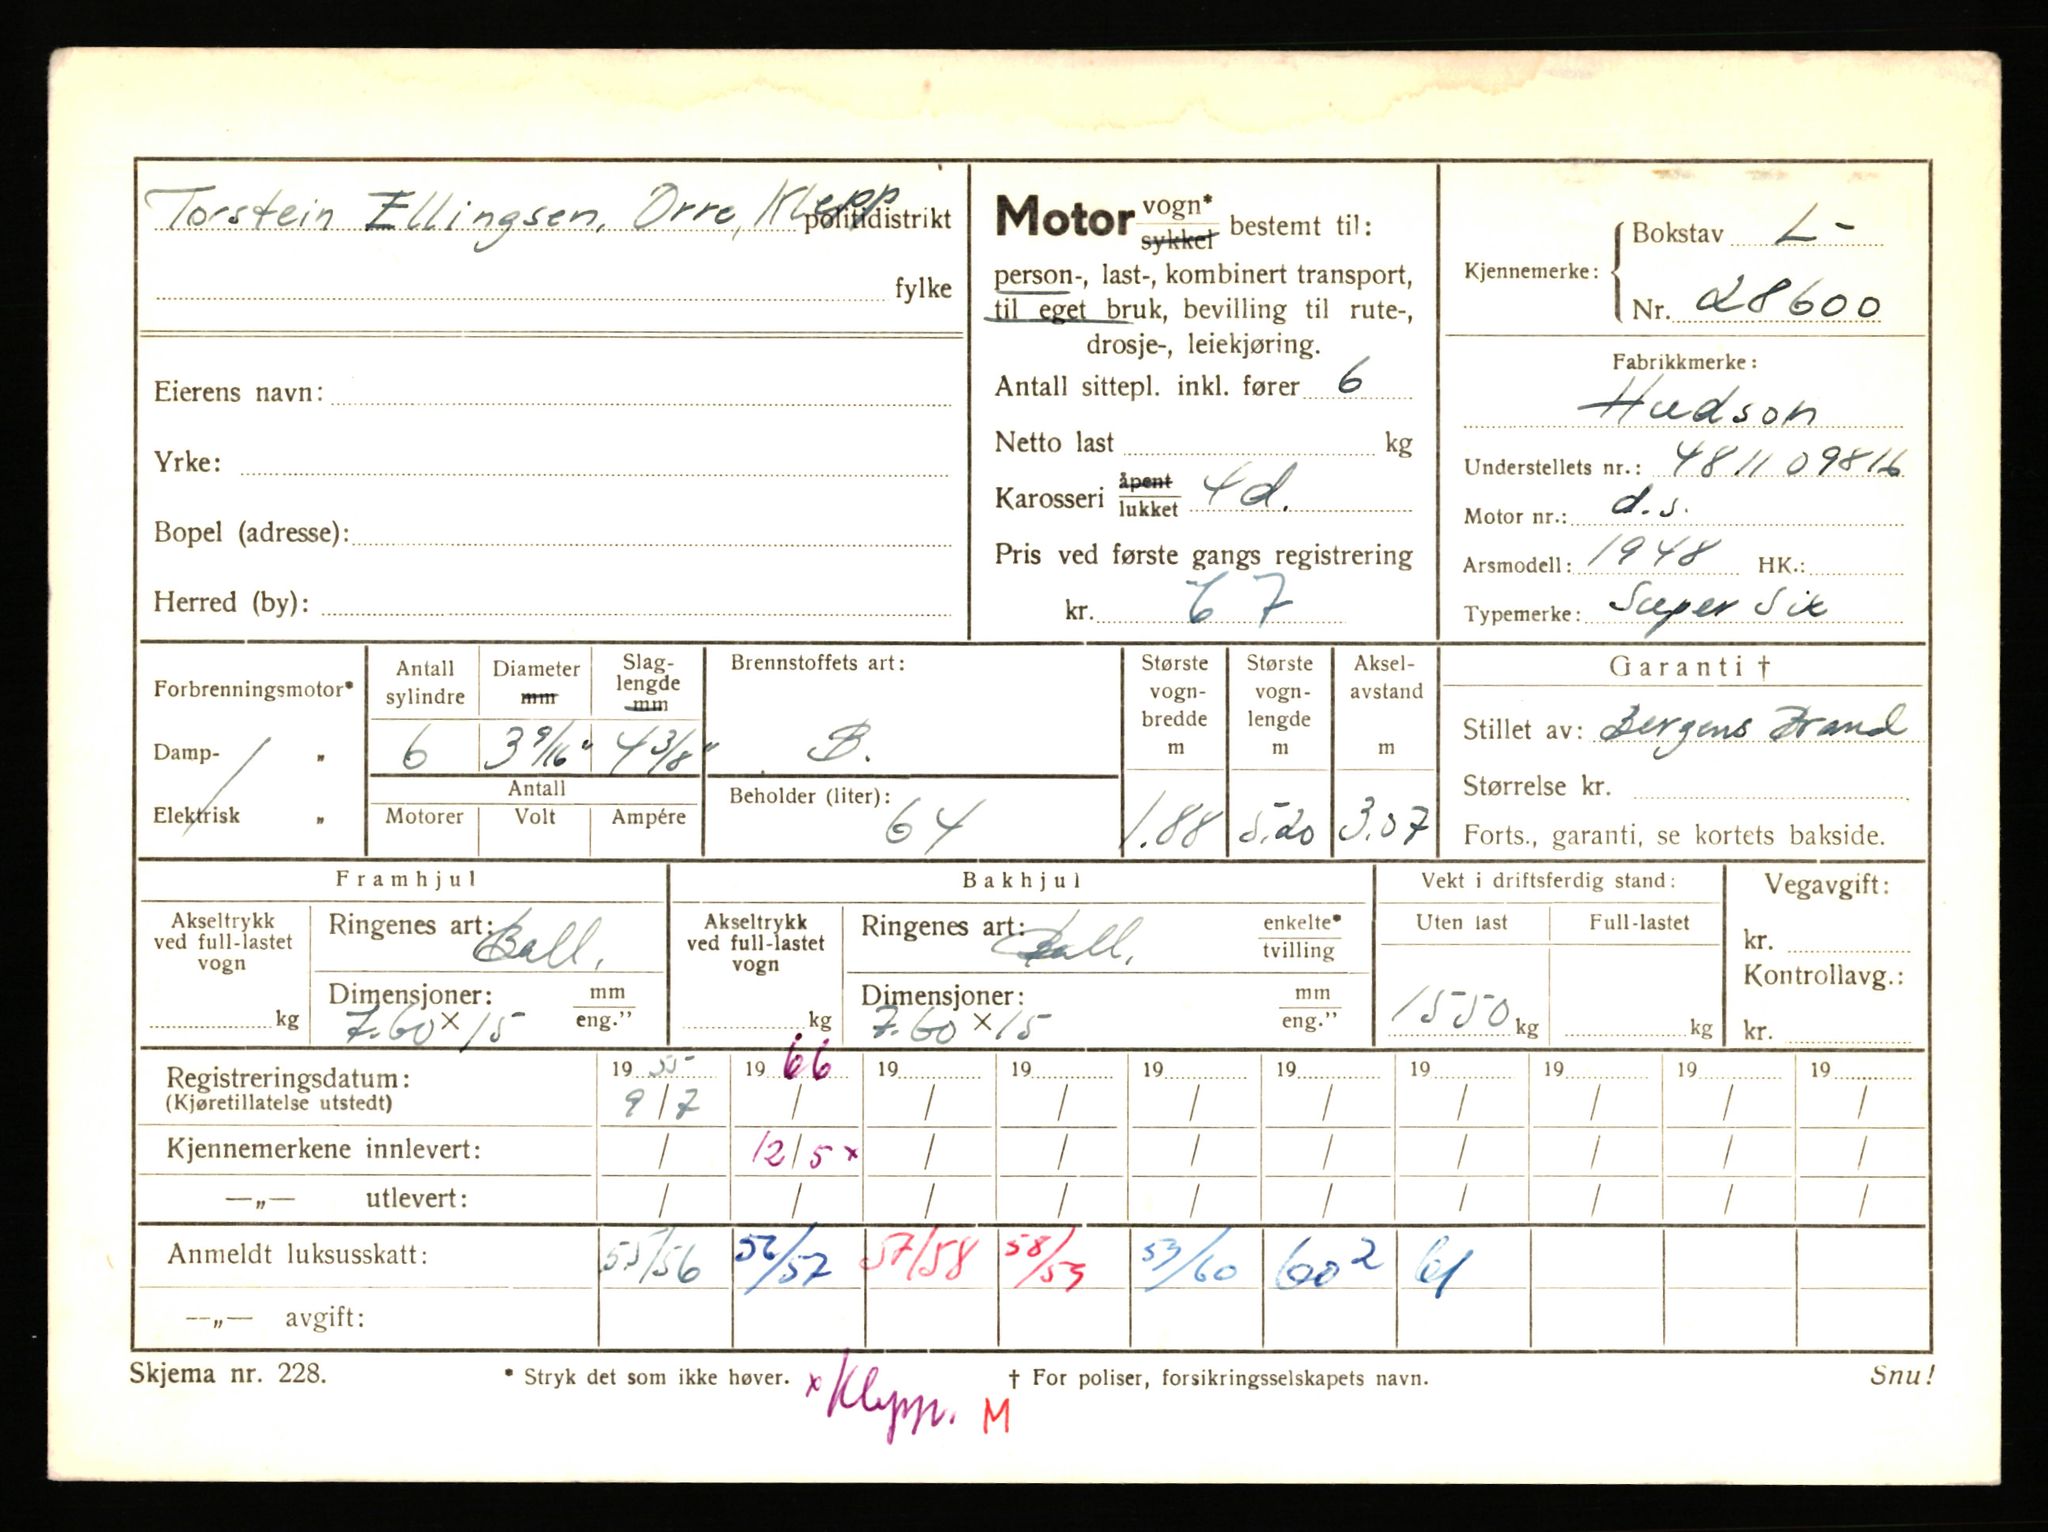 Torstein Ellingsen, Orre, Klepp politidistrikt
fylke
Eierens navn:
Yrke:
Bopel (adresse):
Herred (by):
Motor vogn* sykkel bestemt til:
person-, last-, kombinert transport,
til eget bruk, bevilling til rute-,
drosje-, leiekjøring.
Antall sittepl. inkl. fører 6
Netto last kg
Karosseri åpent lukket 4d.
Pris ved første gangs registrering
kr. 67
Kjennemerke: Bokstav L-
Nr. 28600
Fabrikkmerke:
Hudson
Understellets nr.: 481109816
Motor nr.: d.s.
Arsmodell: 1948 HK.:
Typemerke: Super Six
Forbrenningsmotor*
Damp- „
Elektrisk „
Antall sylindre
6
Diameter mm
3 9/16"
Slag-lengde mm
4 3/8"
Antall
Motorer Volt Ampére
Brennstoffets art:
B.
Beholder (liter):
64
Største vogn-bredde m
1.88
Største vogn-lengde m
5.20
Aksel-avstand m
3.07
Garanti †
Stillet av: Bergens Brand
Størrelse kr.
Forts., garanti, se kortets bakside.
Framhjul
Akseltrykk ved full-lastet vogn
kg
Ringenes art: Ball.
Dimensjoner: mm eng."
7.60 x 15
Bakhjul
Akseltrykk ved full-lastet vogn
kg
Ringenes art: Ball. enkelte* tvilling
Dimensjoner: mm eng."
7.60 x 15
Vekt i driftsferdig stand:
Uten last Full-lastet
1550 kg kg
Vegavgift:
kr.
Kontrollavg.:
kr.
Registreringsdatum: 19 55 19 66 19 19 19 19 19 19 19 19
(Kjøretillatelse utstedt) 9/7 / / / / / / / / /
Kjennemerkene innlevert: / 12/5 x / / / / / / / /
—„— utlevert: / / / / / / / / / /
Anmeldt luksusskatt: 55/56 56/57 57/58 58/59 59/60 60 2 61
—„— avgift:
Skjema nr. 228. * Stryk det som ikke høver. † For poliser, forsikringsselskapets navn. Snu!
x Klepp. M